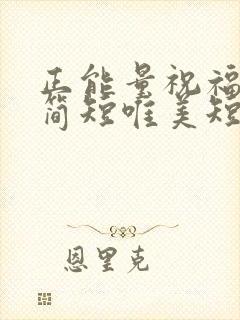 正能量祝福
简短唯美短
恩里克